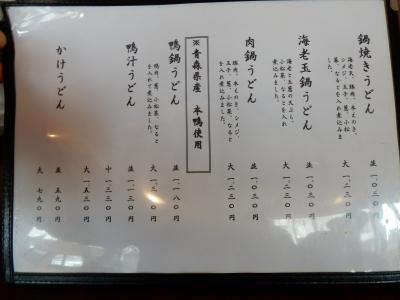 鍋焼きうどん
海老天、豚肉、本えのき、
シメジ、玉子、葱、小松
菜、なるとを入れ煮込みま
した。
並 一、〇三〇円
大 一、二三〇円
海老玉鍋うどん
海老と玉葱の天ぷら、
小松菜、なるとを入れ
煮込みました。
並 一、〇三〇円
大 一、二三〇円
肉鍋うどん
豚肉、本えのき、シメジ、
玉子、葱、小松菜、なると
を入れて煮込みました。
並 一、〇三〇円
大 一、二三〇円
※青森県産 本鴨使用
鴨鍋うどん
鴨肉、葱、小松菜、なると
を入れて煮込みました。
並 一、一八〇円
大 一、三
鴨汁うどん
並 一、一三〇円
中 一、三三〇円
大 一、五三〇円
かけうどん
並 五九〇円
大 七九〇円